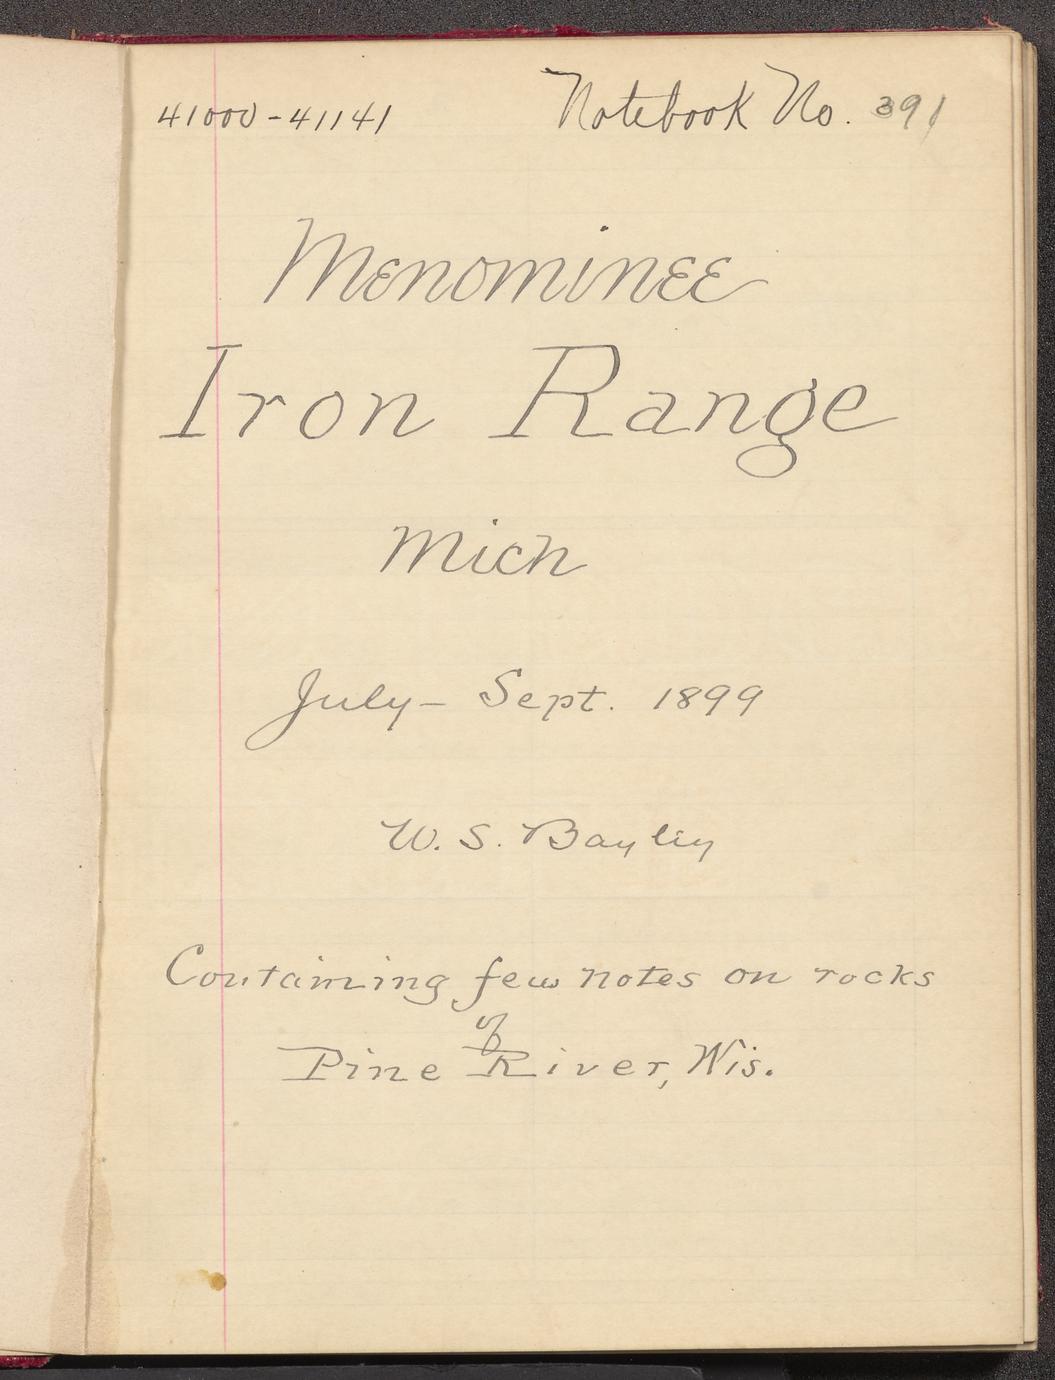 41000-41141 Notebook No. 391
Menominee
Iron Range
Mich
July - Sept. 1899
W. S. Bayley
Containing few notes on rocks
of
Pine River, Wis.